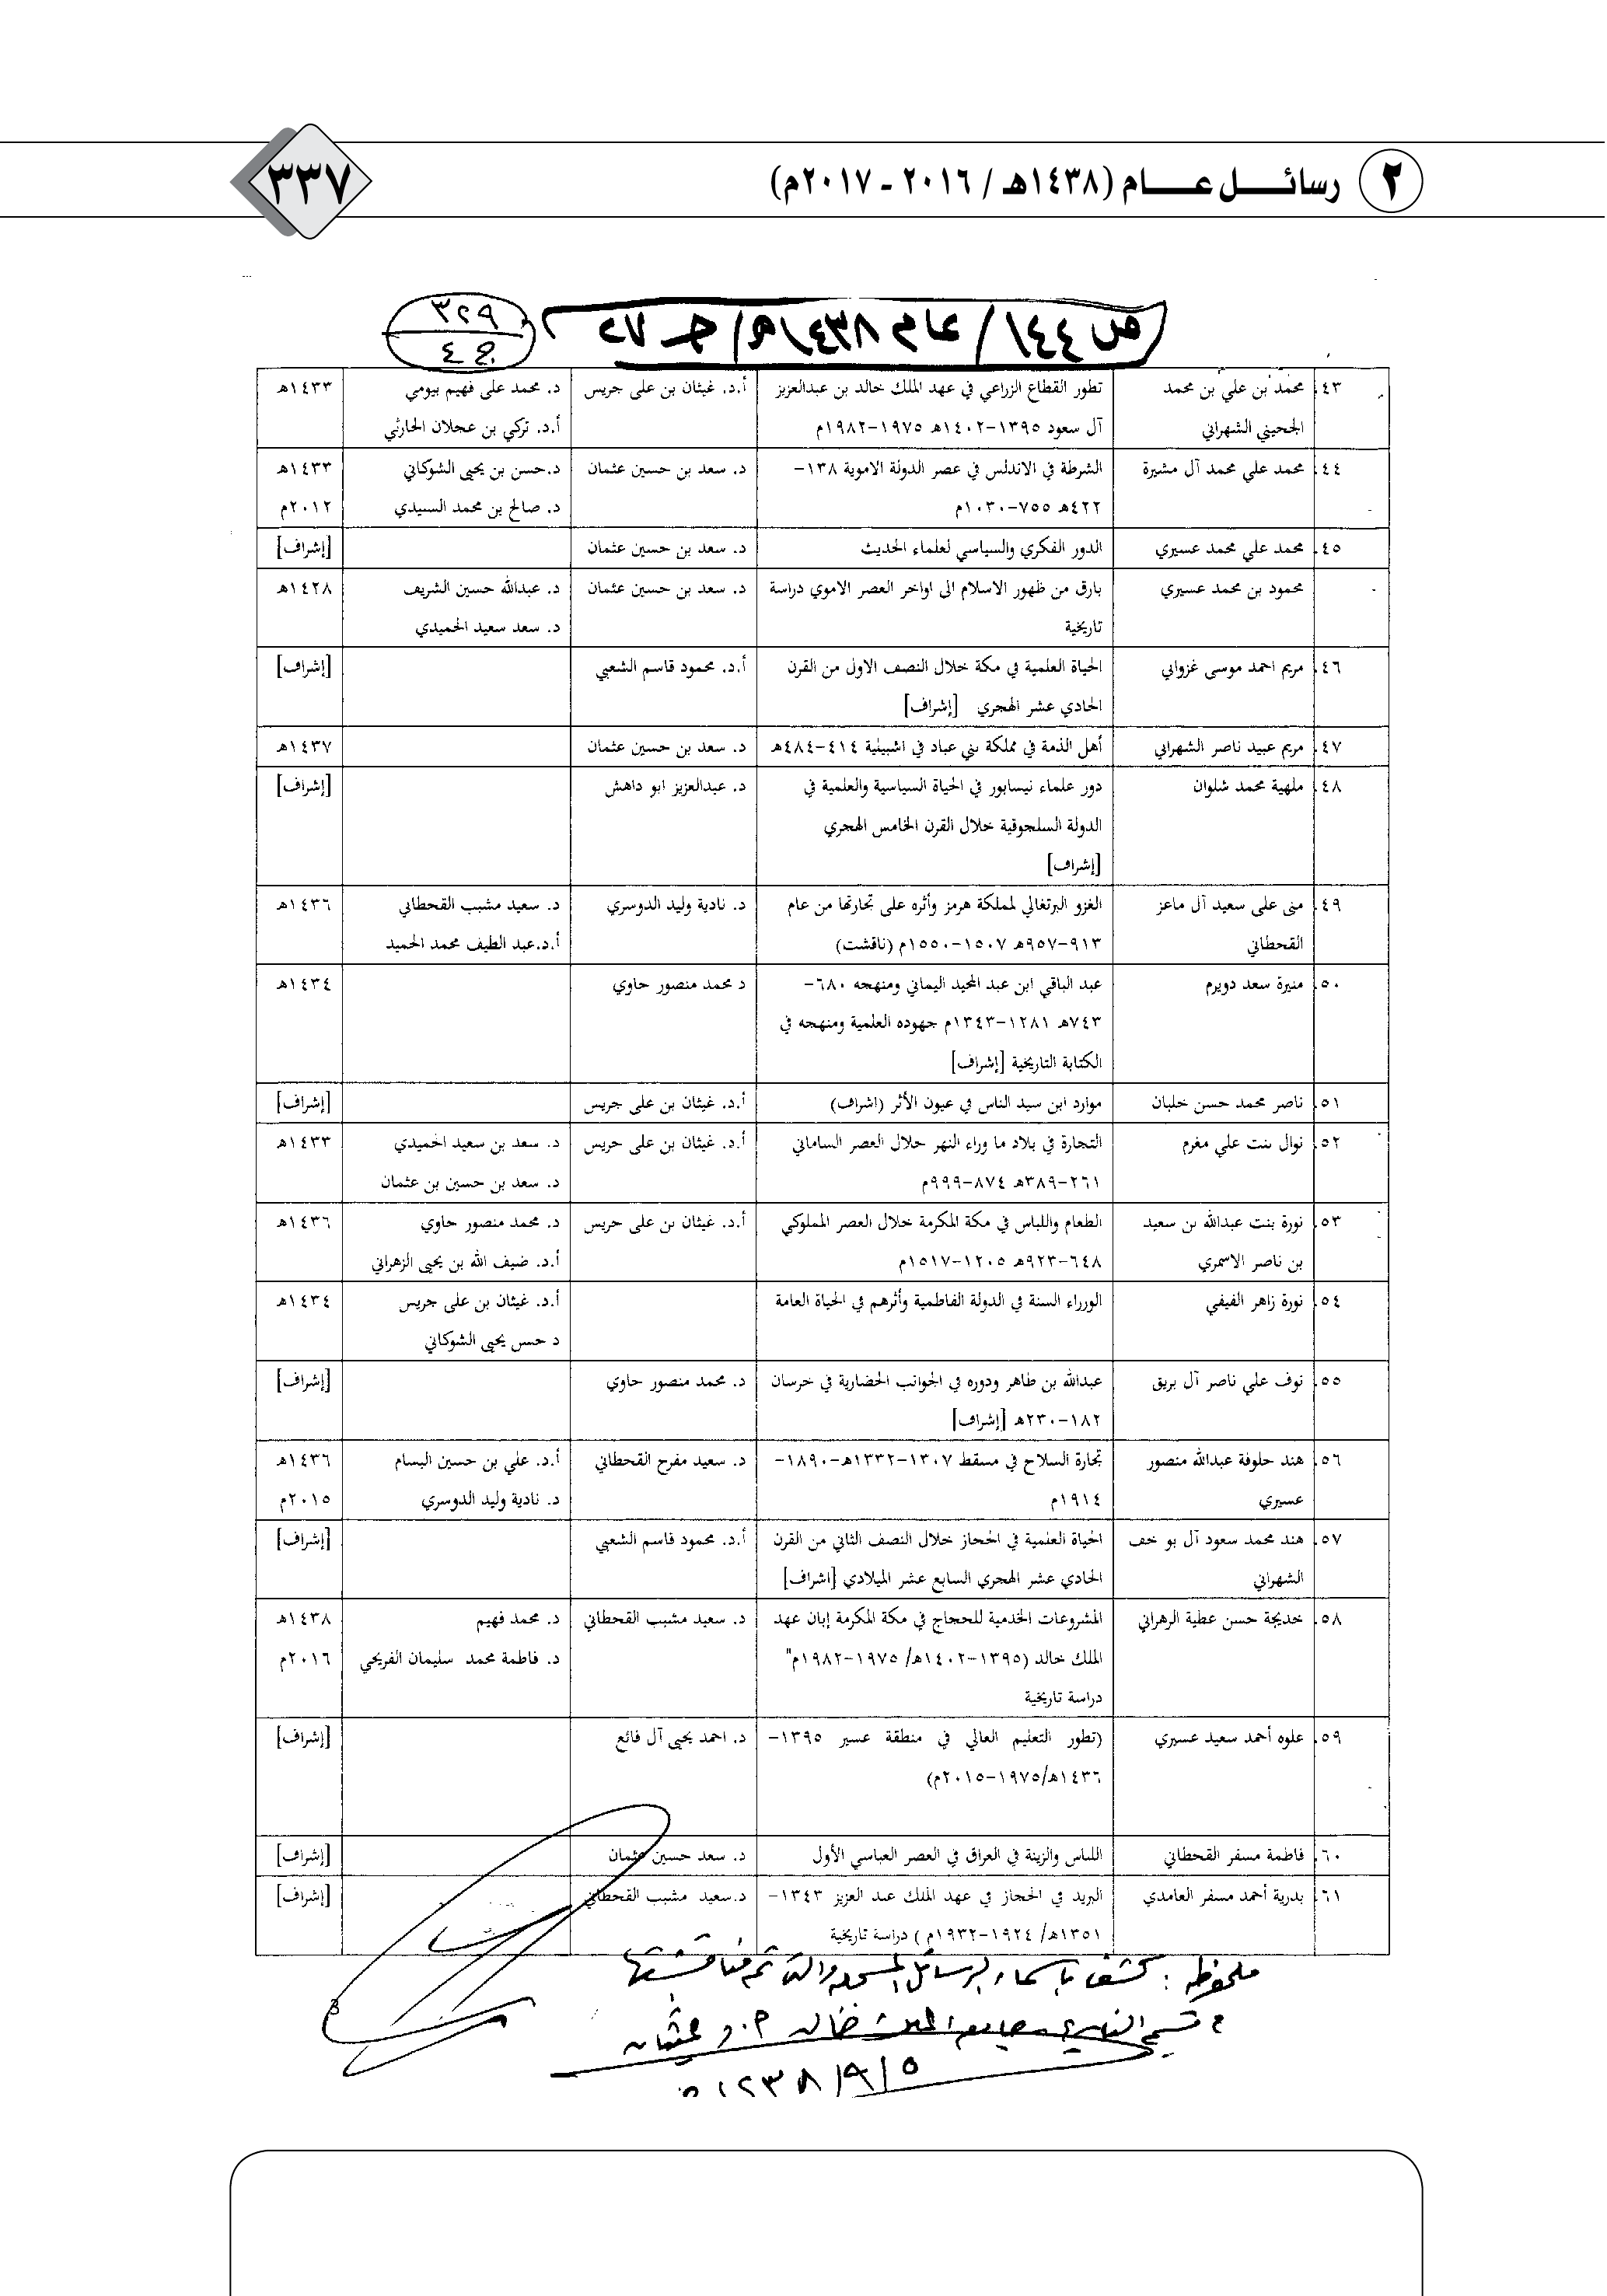 ٢ رسائــــل عــــام (١٤٣٨هـ / ٢٠١٦ - ٢٠١٧م)
٣٣٧
٣٢٩
ج ٤
٤٣. محمد بن علي بن محمد الجحيني الشهراني تطور القطاع الزراعي في عهد الملك خالد بن عبدالعزيز آل سعود ١٣٩٥-١٤٠٢هـ ١٩٧٥-١٩٨٢م أ.د. غيثان بن على جريس د. محمد على فهيم بيومي أ.د. تركي بن عجلان الحارثي ١٤٣٣هـ
٤٤. محمد علي محمد آل مشيرة الشرطة في الاندلس في عصر الدولة الاموية ١٣٨-٤٢٢هـ ٧٥٥-١٠٣٠م د. سعد بن حسين عثمان د.حسن بن يحيى الشوكاني د. صالح بن محمد السبيدي ١٤٣٣هـ ٢٠١٢م
٤٥. محمد علي محمد عسيري الدور الفكري والسياسي لعلماء الحديث د. سعد بن حسين عثمان [إشراف]
محمود بن محمد عسيري بارق من ظهور الاسلام الى اواخر العصر الاموي دراسة تاريخية د. سعد بن حسين عثمان د. عبدالله حسين الشريف د. سعد سعيد الحميدي ١٤٢٨هـ
٤٦. مريم احمد موسى غزواني الحياة العلمية في مكة خلال النصف الاول من القرن الحادي عشر الهجري [إشراف] أ.د. محمود قاسم الشعبي [إشراف]
٤٧. مريم عبيد ناصر الشهراني أهل الذمة في مملكة بني عباد في اشبيلية ٤١٤-٤٨٤هـ د. سعد بن حسين عثمان ١٤٣٧هـ
٤٨. ملهية محمد شلوان دور علماء نيسابور في الحياة السياسية والعلمية في الدولة السلجوقية خلال القرن الخامس الهجري [إشراف] د. عبدالعزيز ابو داهش [إشراف]
٤٩. منى على سعيد آل ماعز القحطاني الغزو البرتغالي لمملكة هرمز وأثره على تجارتها من عام ٩١٣-٩٥٧هـ ١٥٠٧-١٥٥٠م (ناقشت) د. نادية وليد الدوسري د. سعيد مشبب القحطاني أ.د.عبد الطيف محمد الحميد ١٤٣٦هـ
٥٠. منيرة سعد دويرم عبد الباقي ابن عبد المجيد اليماني ومنهجه ٦٨٠-٧٤٣هـ ١٢٨١-١٣٤٣م جهوده العلمية ومنهجه في الكتابة التاريخية [إشراف] د محمد منصور حاوي ١٤٣٤هـ
٥١. ناصر محمد حسن خلبان موارد ابن سيد الناس في عيون الأثر (اشراف) أ.د. غيثان بن على جريس [إشراف]
٥٢. نوال بنت علي مغرم التجارة في بلاد ما وراء النهر خلال العصر الساماني ٢٦١-٣٨٩هـ ٨٧٤-٩٩٩م أ.د. غيثان بن على جريس د. سعد بن سعيد الحميدي د. سعد بن حسين بن عثمان ١٤٣٣هـ
٥٣. نورة بنت عبدالله بن سعيد بن ناصر الاسمري الطعام واللباس في مكة المكرمة خلال العصر المملوكي ٦٤٨-٩٢٣هـ ١٢٠٥-١٥١٧م أ.د. غيثان بن على جريس د. محمد منصور حاوي أ.د. ضيف الله بن يحيى الزهراني ١٤٣٦هـ
٥٤. نورة زاهر الفيفي الوزراء السنة في الدولة الفاطمية وأثرهم في الحياة العامة أ.د. غيثان بن على جريس د حسن يحيى الشوكاني ١٤٣٤هـ
٥٥. نوف علي ناصر آل بريق عبدالله بن طاهر ودوره في الجوانب الحضارية في خرسان ١٨٢-٢٣٠هـ [إشراف] د. محمد منصور حاوي [إشراف]
٥٦. هند حلوفة عبدالله منصور عسيري تجارة السلاح في مسقط ١٣٠٧-١٣٣٢هـ-١٨٩٠-١٩١٤م د. سعيد مفرح القحطاني أ.د. علي بن حسين البسام د. نادية وليد الدوسري ١٤٣٦هـ ٢٠١٥م
٥٧. هند محمد سعود آل بو خف الشهراني الحياة العلمية في الحجاز خلال النصف الثاني من القرن الحادي عشر الهجري السابع عشر الميلادي [اشراف] أ.د. محمود قاسم الشعبي [إشراف]
٥٨. خديجة حسن عطية الزهراني المشروعات الخدمية للحجاج في مكة المكرمة إبان عهد الملك خالد (١٣٩٥-١٤٠٢هـ/ ١٩٧٥-١٩٨٢م" دراسة تاريخية د. سعيد مشبب القحطاني د. محمد فهيم د. فاطمة محمد سليمان الفريحي ١٤٣٨هـ ٢٠١٦م
٥٩. علوه أحمد سعيد عسيري (تطور التعليم العالي في منطقة عسير ١٣٩٥-١٤٣٦هـ/١٩٧٥-٢٠١٥م) د. احمد يحيى آل فائع [إشراف]
٦٠. فاطمة مسفر القحطاني اللباس والزينة في العراق في العصر العباسي الأول د. سعد حسين عثمان [إشراف]
٦١. بدرية أحمد مسفر الغامدي البريد في الحجاز في عهد الملك عبد العزيز ١٣٤٣-١٣٥١هـ/ ١٩٢٤-١٩٣٢م ) دراسة تاريخية د.سعيد مشبب القحطاني [إشراف]
ملحوظة : كشف بأسماء الرسائل المسجلة والتي تم مناقشتها
قسم التاريخ جامعة الملك خالد